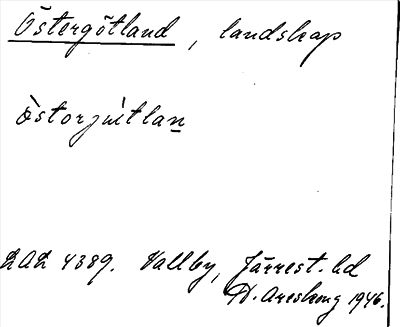 Östergötland, landskap
òstorjwìtlan
LAL 4389. Vallby, Järrest. hd
H. Areskoug 1946.